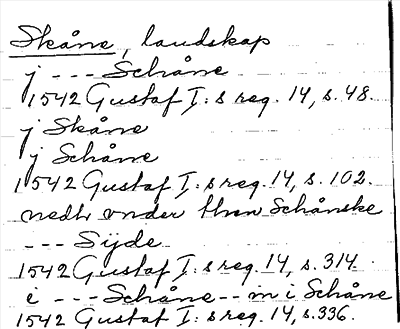 Skåne, landskap
j --- Schåne
1542 Gustaf I:s reg. 14, s. 48.
j Skåne
j Schåne
1542 Gustaf I:s reg. 14, s. 102.
nedh vnder then Schånske
--- Sijde
1542 Gustaf I:s reg. 14, s. 314.
i --- Schåne -- m i Schåne
1542 Gustaf I:s reg. 14, s. 336.